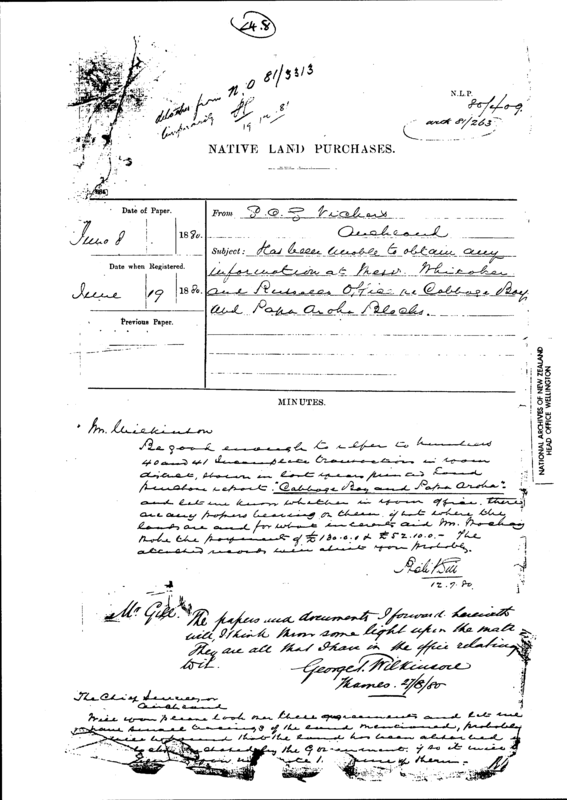 48
detached from N.O 81/3313
temporarily
19 12 81
N.L.P.
80/409
81/263
NATIVE LAND PURCHASES.
Date of Paper.
June 8 1880.
Date when Registered.
June 19 1880.
Previous Paper.
From
Auckland
Subject: Has been unable to obtain any
information at Messrs Whitaker
and Russell's Office re Cabbage Bay
and Papa Aroha Blocks.
MINUTES.
Mr. Wilkinson
Be good enough to refer to numbers
40 and 41 Incomplete transactions in
district, shown in last printed Land
Purchase report "Cabbage Bay and Papa Aroha"
and let me know whether in your office there
are any papers bearing on them, if not where the
lands are and for what interests did Mr.
make the payments of £ & £52.10.0 - The
attached records
12.7.80.
Mr Gill.
The papers and documents I forward herewith
will, I think throw some light upon the matter
They are all that I have in the office relating
to it.
George T. Wilkinson
Thames. 27/8/80
The Chief Surveyor
Auckland
Will you please look over these agreements and let me
have small tracings of the land mentioned, probably
that the land has been
by the Government. if so it will
of them.
NATIONAL ARCHIVES OF NEW ZEALAND
HEAD OFFICE WELLINGTON